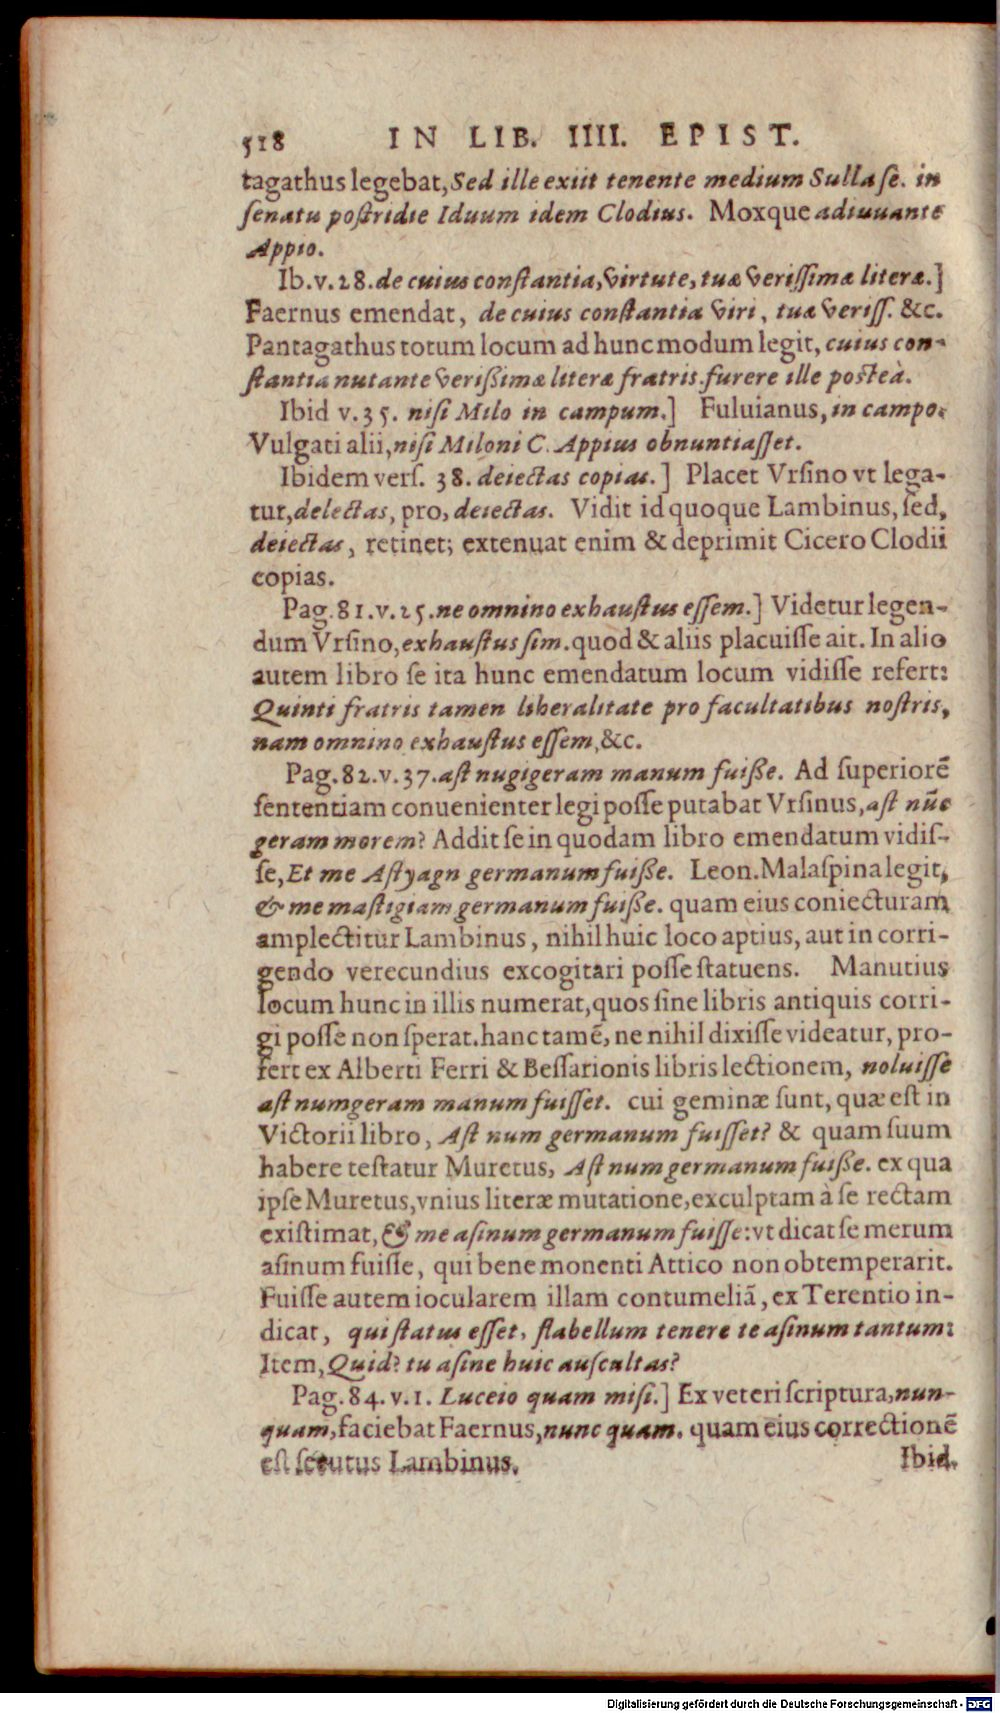 518 IN LIB. IIII. EPIST.
tagathus legebat, Sed ille exiit tenente medium Sulla ſe. in
ſenatu poſtridie Iduum idem Clodius. Moxque adiuuante
Appio.
Ib. v. 28. de cuius conſtantia, virtute, tuæ veriſſimæ literæ.]
Faernus emendat, de cuius conſtantia viri, tuæ veriſſ. &c.
Pantagathus totum locum ad hunc modum legit, cuius con-
ſtantia nutante verißimæ literæ fratris. furere ille posteà.
Ibid v. 35. niſi Milo in campum.] Fuluianus, in campo.
Vulgati alii, niſi Miloni C. Appius obnuntiaſſet.
Ibidem verſ. 38. deiectas copias.] Placet Vrſino vt lega-
tur, delectas, pro, deiectas. Vidit id quoque Lambinus, ſed,
deiectas, retinet; extenuat enim & deprimit Cicero Clodii
copias.
Pag. 81. v. 25. ne omnino exhauſtus eſſem.] Videtur legen-
dum Vrſino, exhauſtus ſim. quod & aliis placuiſſe ait. In alio
autem libro ſe ita hunc emendatum locum vidiſſe refert:
Quinti fratris tamen liberalitate pro facultatibus noſtris,
nam omnino exhauſtus eſſem, &c.
Pag. 82. v. 37. aſt nugigeram manum fuiße. Ad ſuperiorē
ſententiam conuenienter legi poſſe putabat Vrſinus, aſt nūc
geram morem? Addit ſe in quodam libro emendatum vidiſ-
ſe, Et me Aſtyagn germanum fuiße. Leon. Malaſpina legit,
& me maſtigiam germanum fuiße. quam eius coniecturam
amplectitur Lambinus, nihil huic loco aptius, aut in corri-
gendo verecundius excogitari poſſe ſtatuens. Manutius
locum hunc in illis numerat, quos ſine libris antiquis corri-
gi poſſe non ſperat. hanc tamē, ne nihil dixiſſe videatur, pro-
fert ex Alberti Ferri & Beſſarionis libris lectionem, noluiſſe
aſt numgeram manum fuiſſet. cui geminæ ſunt, quæ eſt in
Victorii libro, Aſt num germanum fuiſſet? & quam ſuum
habere teſtatur Muretus, Aſt num germanum fuiße. ex qua
ipſe Muretus, vnius literæ mutatione, exculptam à ſe rectam
existimat, & me aſinum germanum fuiſſe: vt dicat ſe merum
aſinum fuiſſe, qui bene monenti Attico non obtemperarit.
Fuiſſe autem iocularem illam contumeliā, ex Terentio in-
dicat, qui ſtatus eſſet, flabellum tenere te aſinum tantum:
Item, Quid? tu aſine huic auſcultas?
Pag. 84. v. 1. Luceio quam miſi.] Ex veteri ſcriptura, nun-
quam, faciebat Faernus, nunc quam. quam eius correctionē
eſt ſecutus Lambinus.
Ibid.
Digitalisierung gefördert durch die Deutsche Forschungsgemeinschaft - DFG